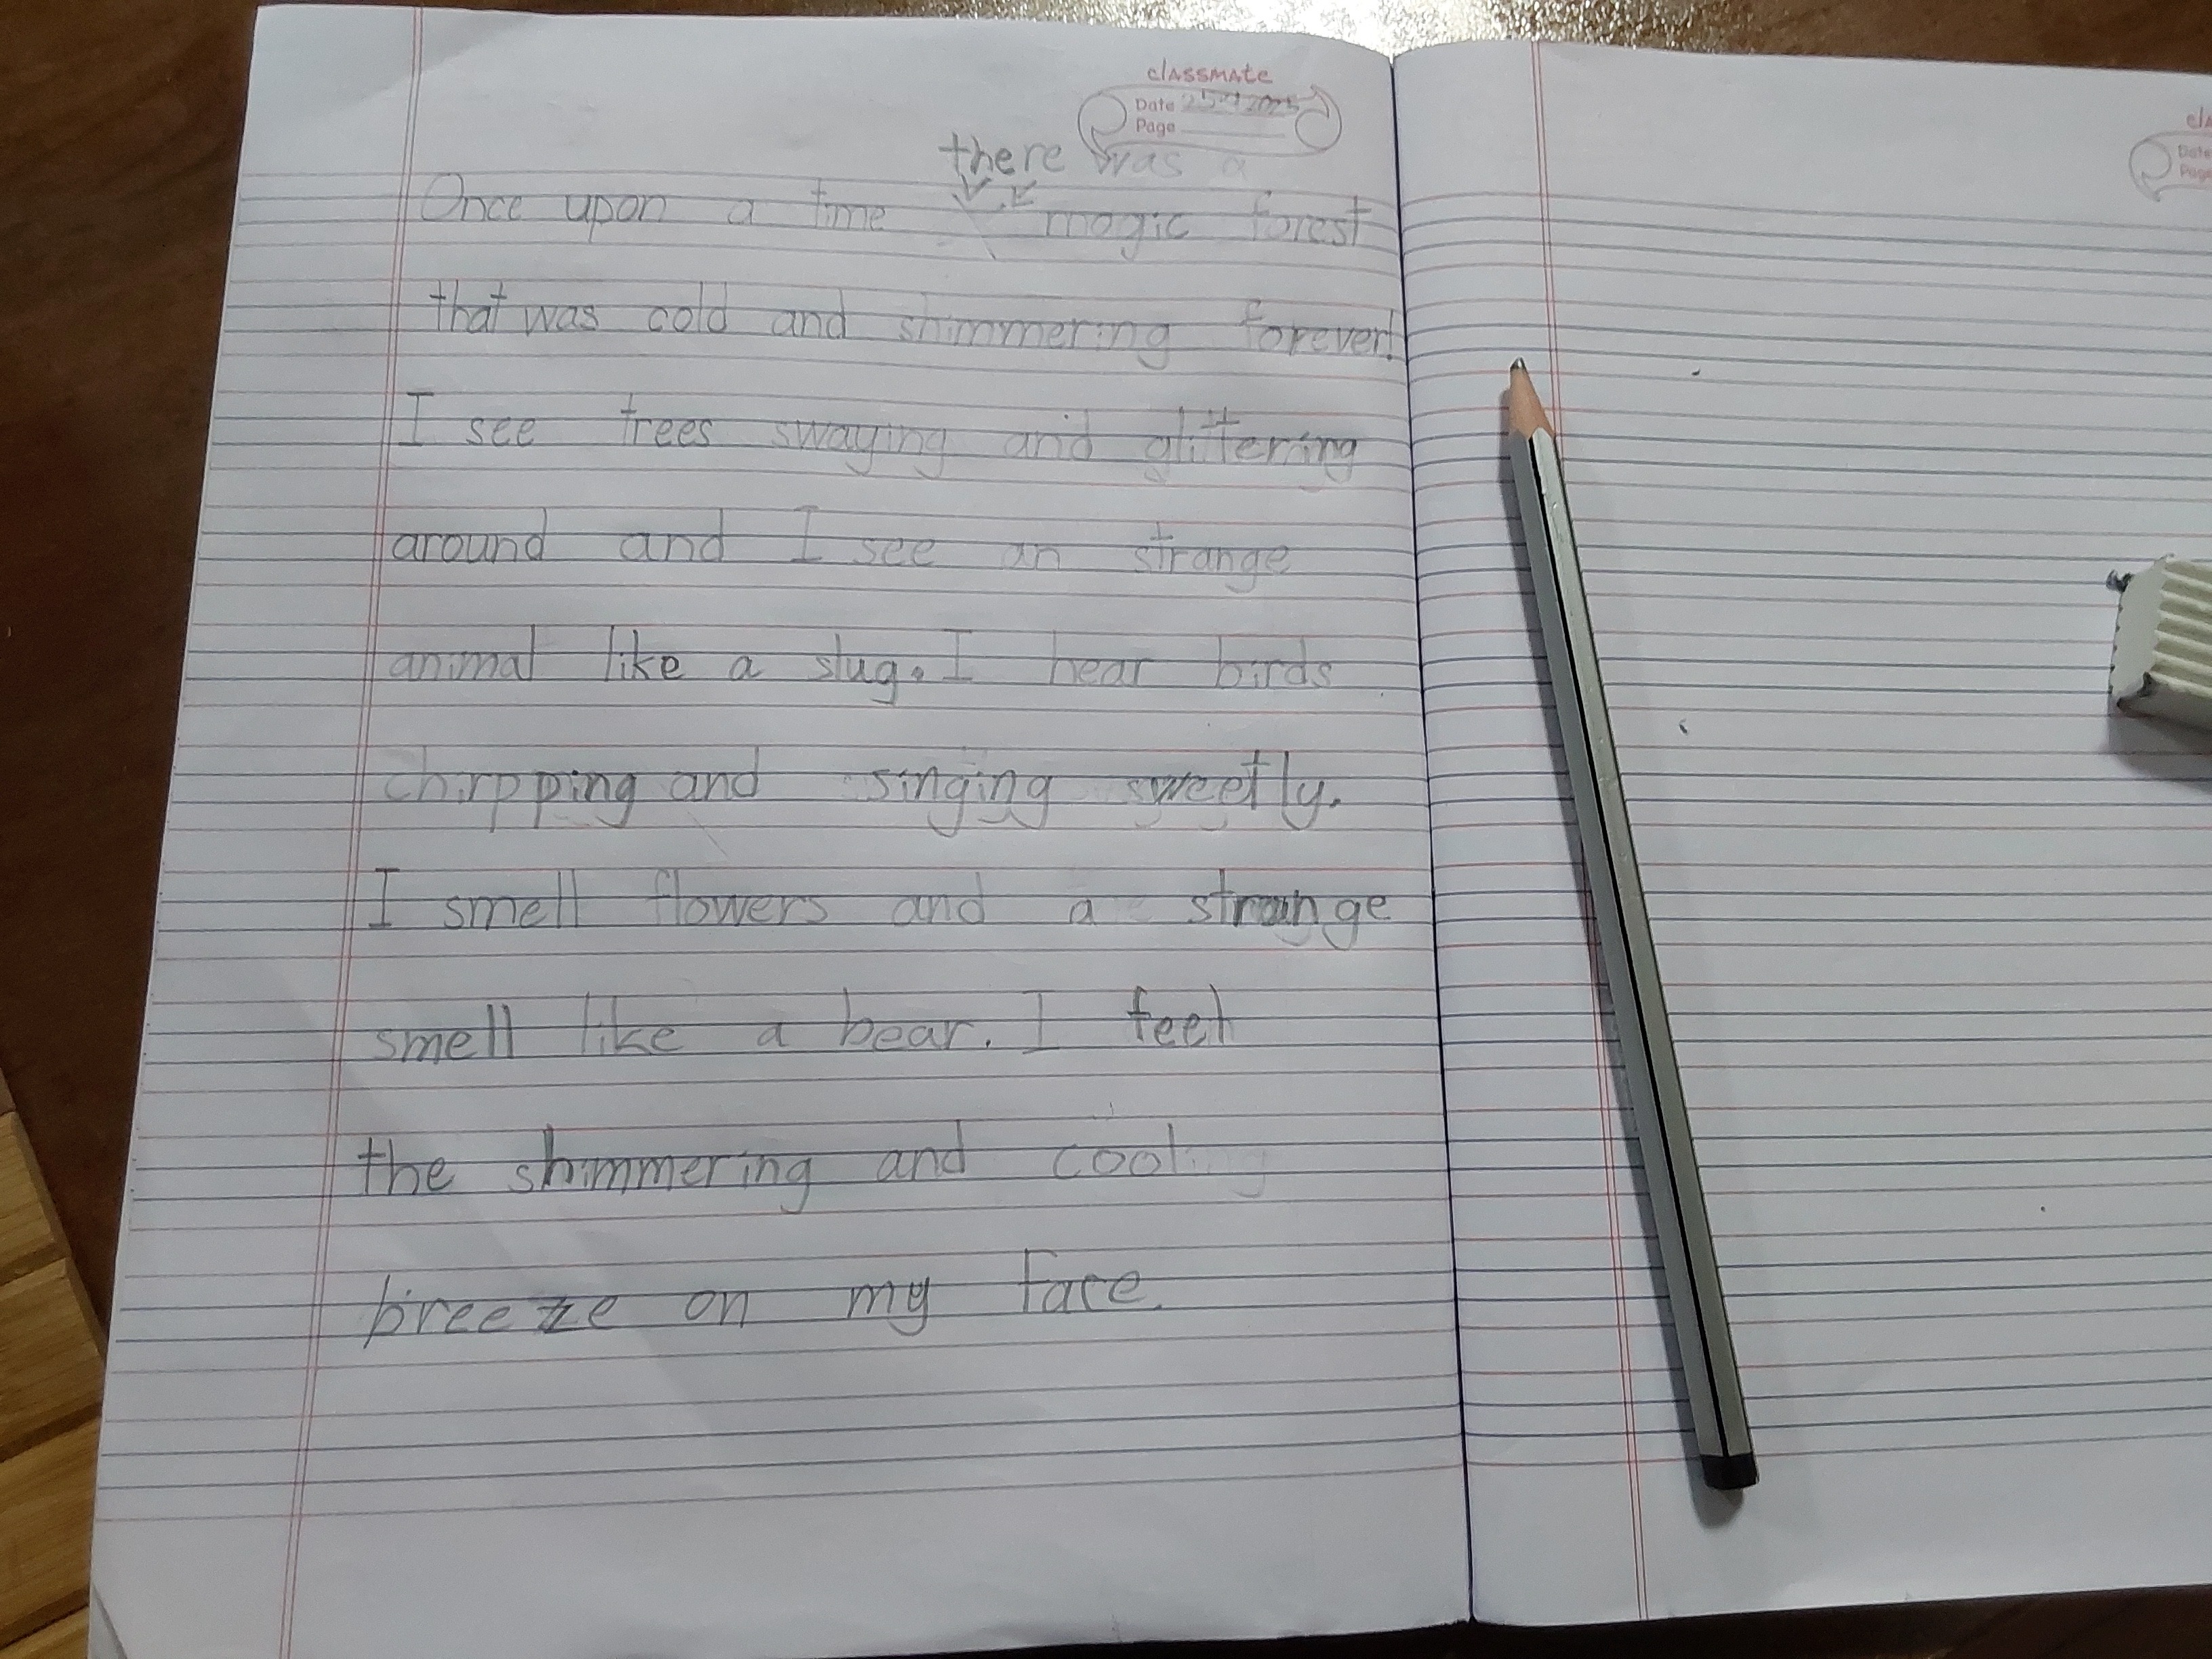 classmate
Date
Page
there was a
Once upon a time magic forest
that was cold and shimmering forever!
I see trees swaying and glittering
around and I see an strange
animal like a slug. I hear birds
chirpping and singing sweetly.
I smell flowers and a strange
smell like a bear. I feel
the shimmering and cool
breeze on my face.
Date
Page